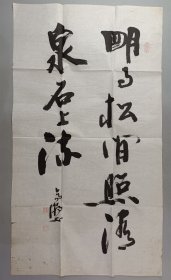 明月松间照清
泉石上流